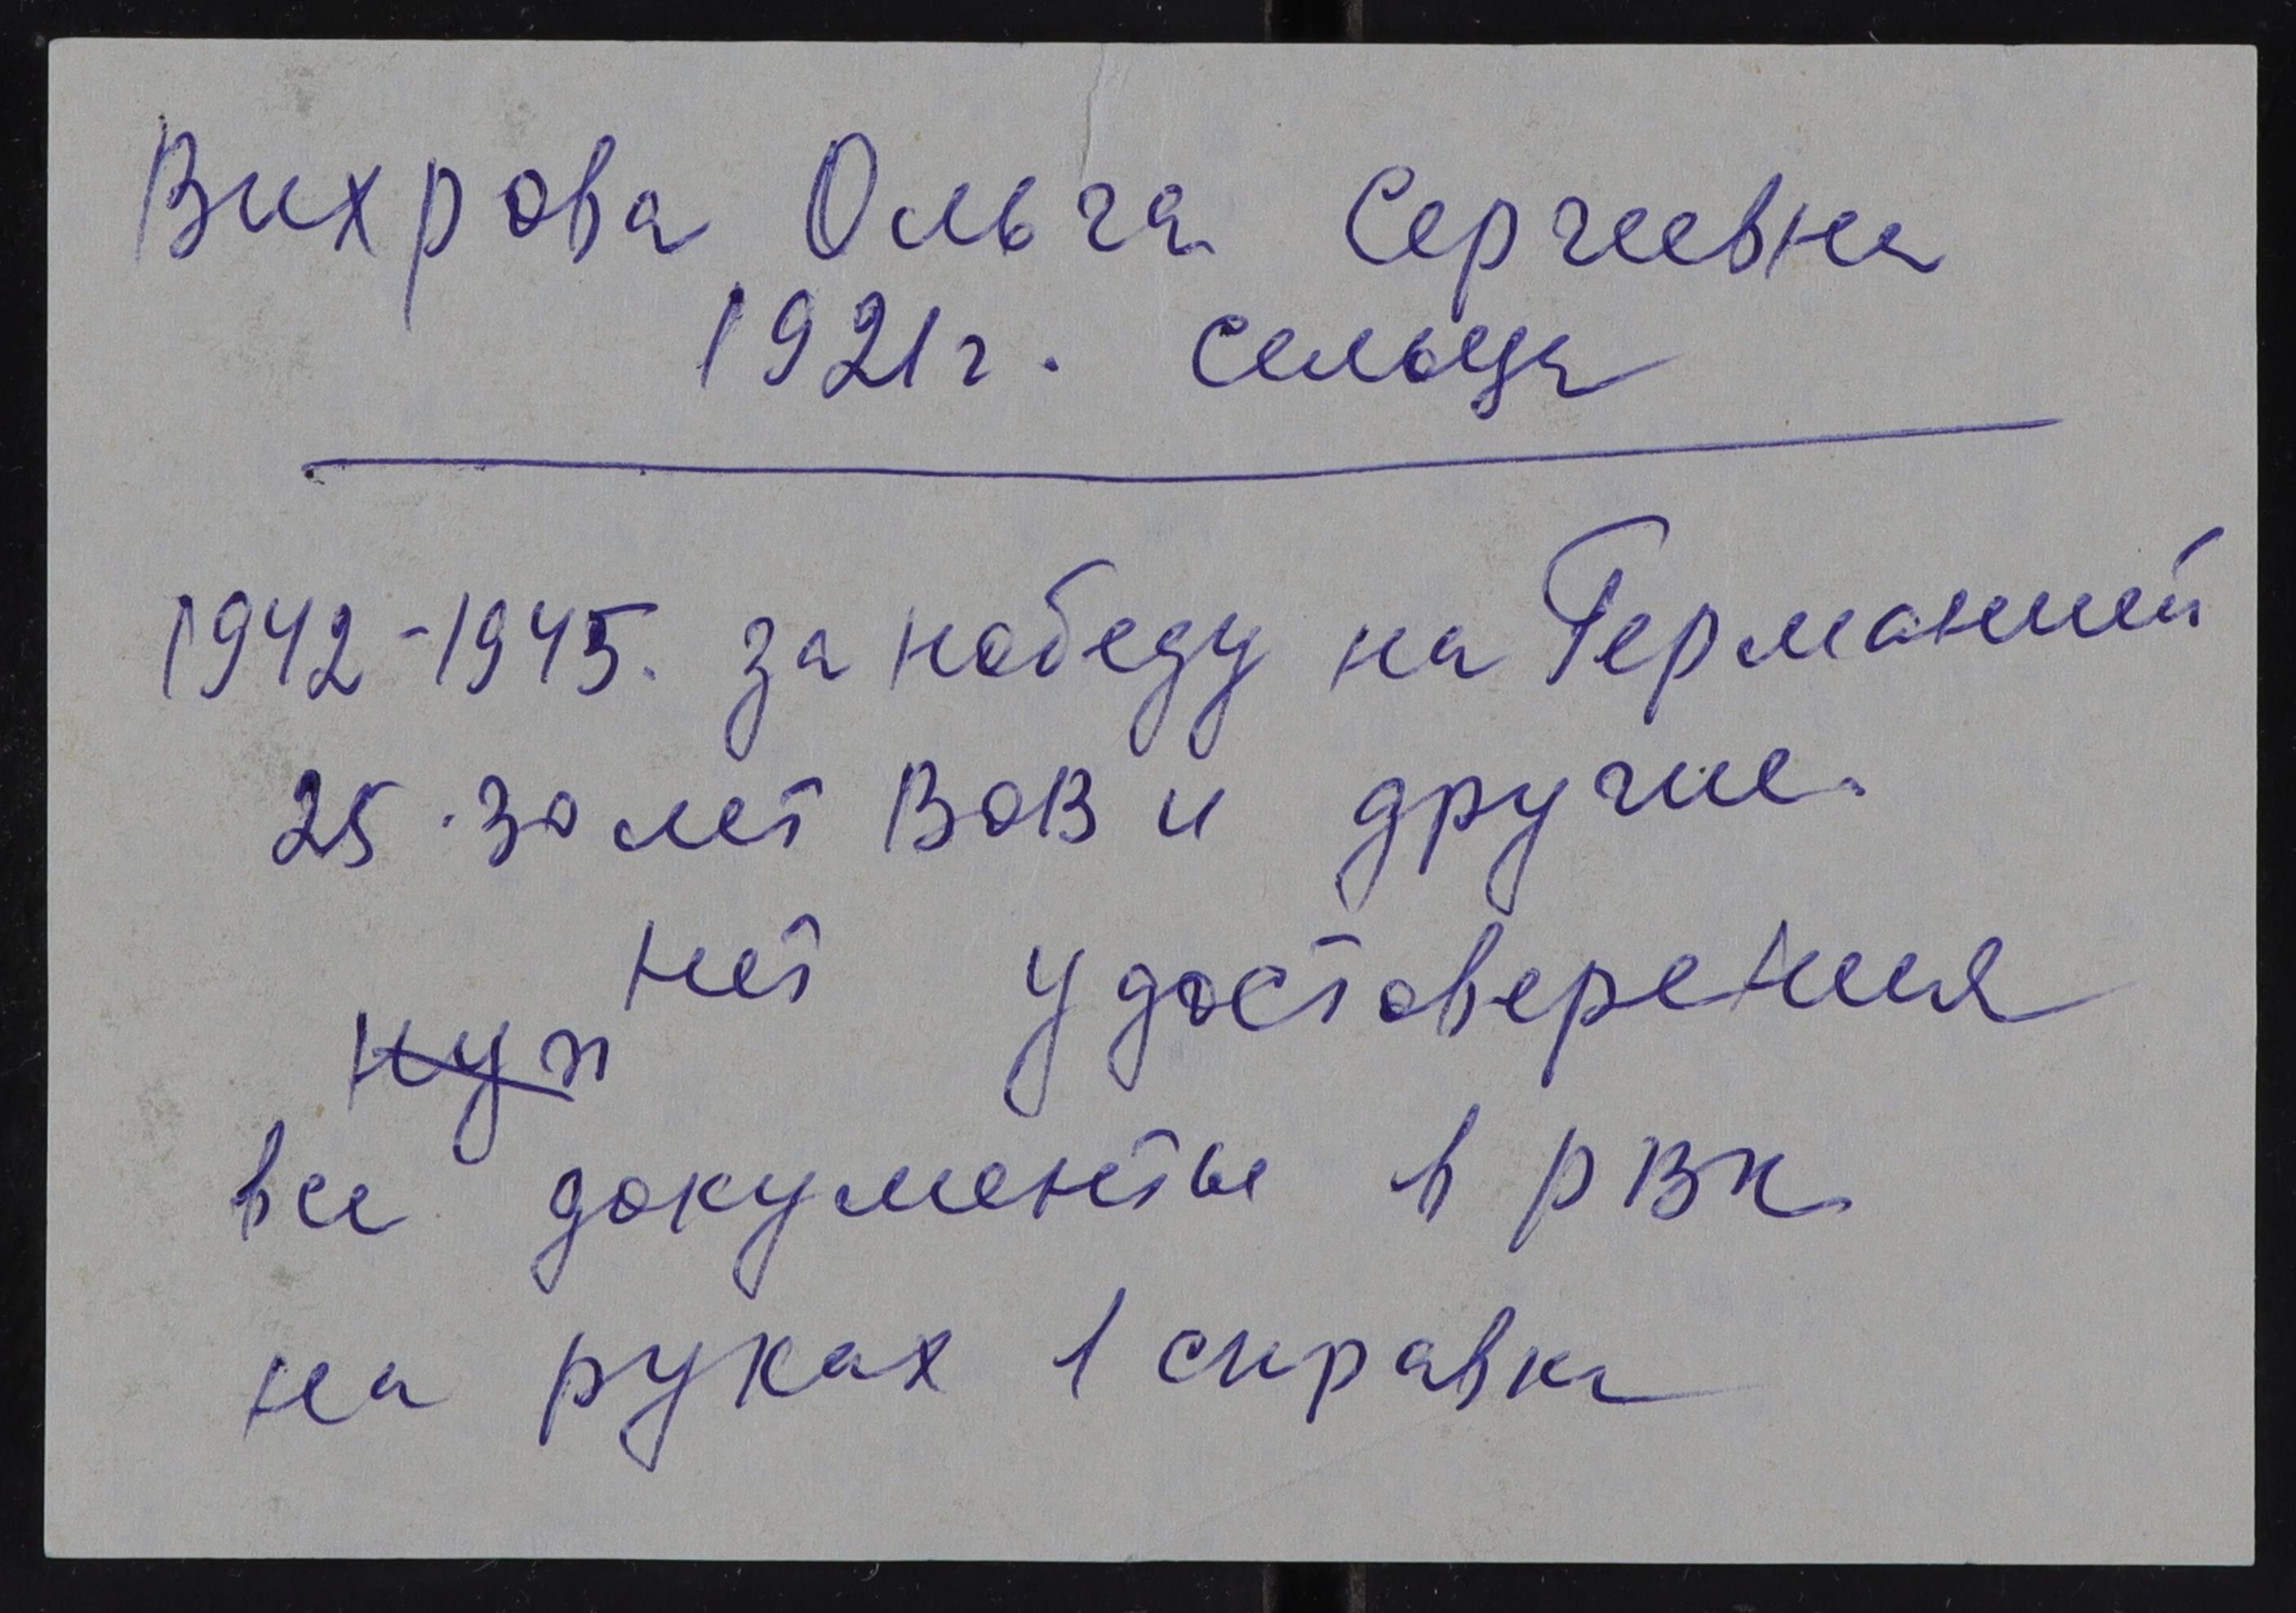 Вихрова Ольга Сергеевна
1921г. сельца
1942-1945. за победу на Германией
25.30 лет ВОВ и другие.
нет удостоверения
нуж
все документы в РВК
на руках 1 справка